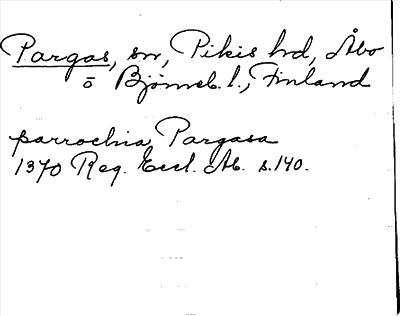 Pargas, sn, Pikis hd, Åbo
o Bjørneb. l., Finland
parrochia Pargasa
1370 Reg. Eccl. Ab. s. 140.